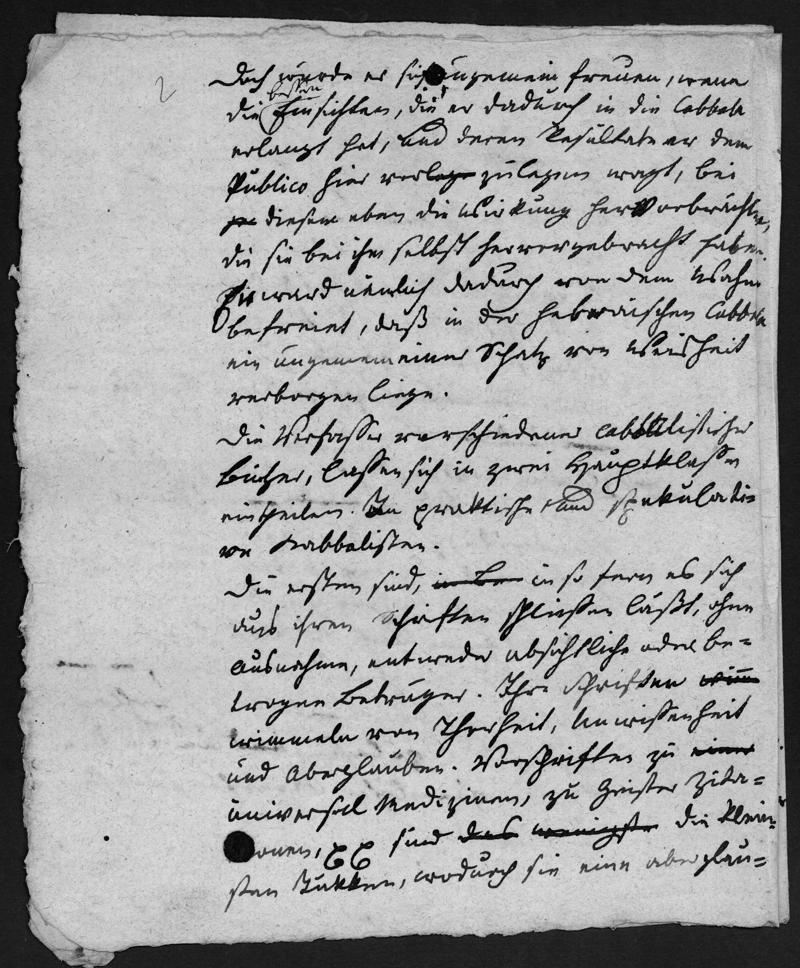 2
Doch würde er sich ungemein freuen, wenn
bessern
die Einsichten, die er dadurch in die Cabbala
erlangt hat, und deren Resultate er dem
Publico hier vorlege zulegen wagt, bei
diesem eben die Wirkung hervorbrächten,
die sie bei ihm selbst hervorgebracht haben.
Er ward nämlich dadurch von dem Wahn
befreiet, daß in der hebräischen Cabbala
ein ungemeiner Schatz von Weisheit
verborgen liege.
Die Verfasser verschiedener cabbalistischer
Bücher, lassen sich in zwei Hauptklassen
eintheilen. In praktische und spekulati-
ve Kabbalisten.
Die ersten sind, in so fern es sich
aus ihren Schriften schliessen läßt, ohne
Ausnahme, entweder absichtliche oder be-
trogene Betrüger. Ihre Schriften wim
wimmeln von Thorheit, Unwissenheit
und Aberglauben. Vorschriften zu einer
universal Medizinen, zu Geister Zita-
tionen, sind das wenigste die klein-
sten Tükken, wodurch sie eine aberglau-